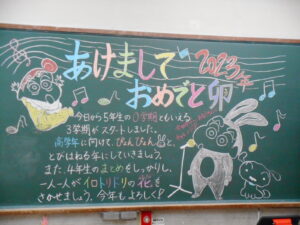 あけまして
2023年
おめでと卯
今日から5年生の0学期ともいえる
3学期がスタートしました。
高学年に向けて、ぴょんぴょんと、
とびはねる年にしていきましょう。
また、4年生のまとめをしっかりし、
一人一人がイロトリドリの花を
さかせましょう。今年もよろしく!